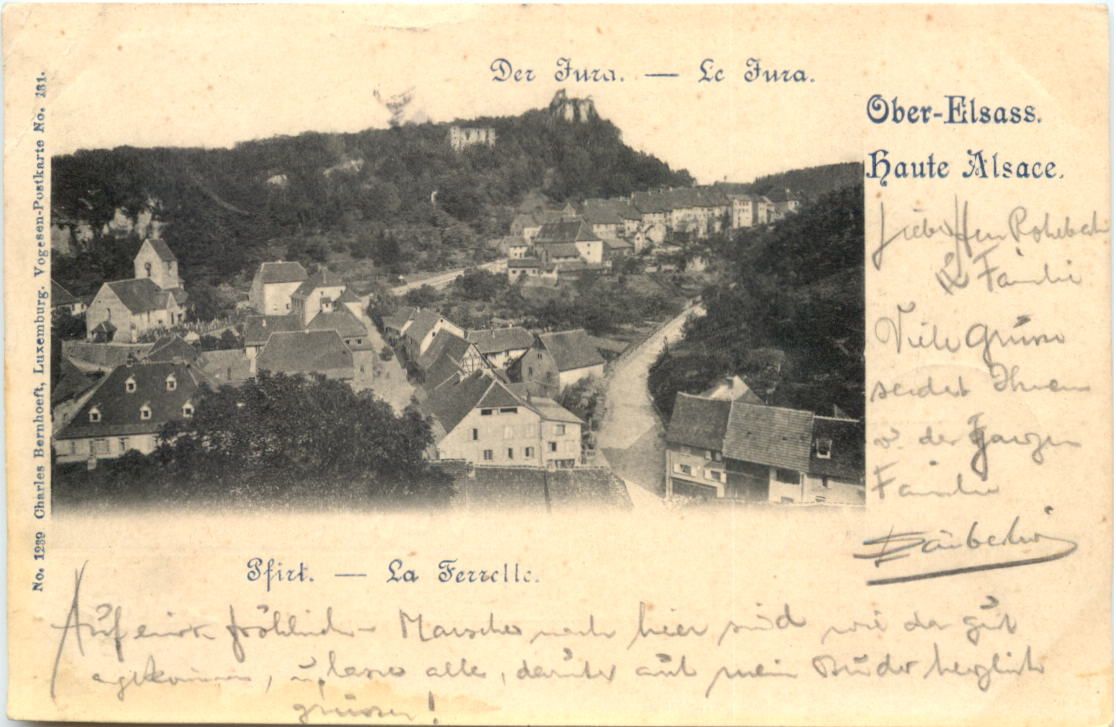 Der Jura. — Le Jura.
Ober-Elsass.
Haute Alsace.
No. 1239 Charles Bernhoeft, Luxemburg. Vogesen-Postkarte No. 131.
Lieber Herr
& Familie
Viele Grüsse
sendet Ihnen
u. der ganzen
Familie
Pfirt. — La Ferrette.
Auf einem fröhlichen Marsche nach hier sind wir da gut
u. lasse alle, darunter auch mein Bruder herzlich
grüssen!